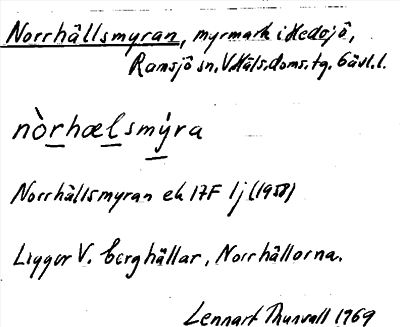 Norrhällsmyran, myrmark i Hedsjö,
Ramsjö sn. V. Häls. doms. tg. Gävl. l.
nòrhælsmýra
Norrhällsmyran ek 17F 1j (1958)
Ligger V. berghällar, Norrhällorna.
Lennart Thunvall 1969